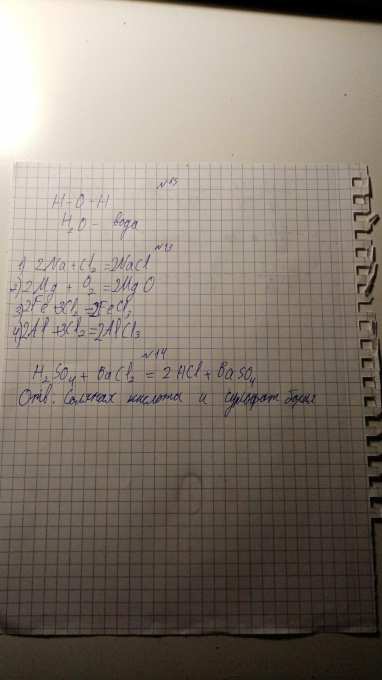 №15
H-O-H
H₂O - вода
№13
1) 2Na+Cl₂=2NaCl
2) 2Mg + O₂ =2MgO
3) 2Fe+3Cl₂=2FeCl₃
4) 2Al+3Cl₂=2AlCl₃
№14
H₂SO₄ + BaCl₂ = 2HCl+BaSO₄
Отв. Соляная кислоты и сульфат бария